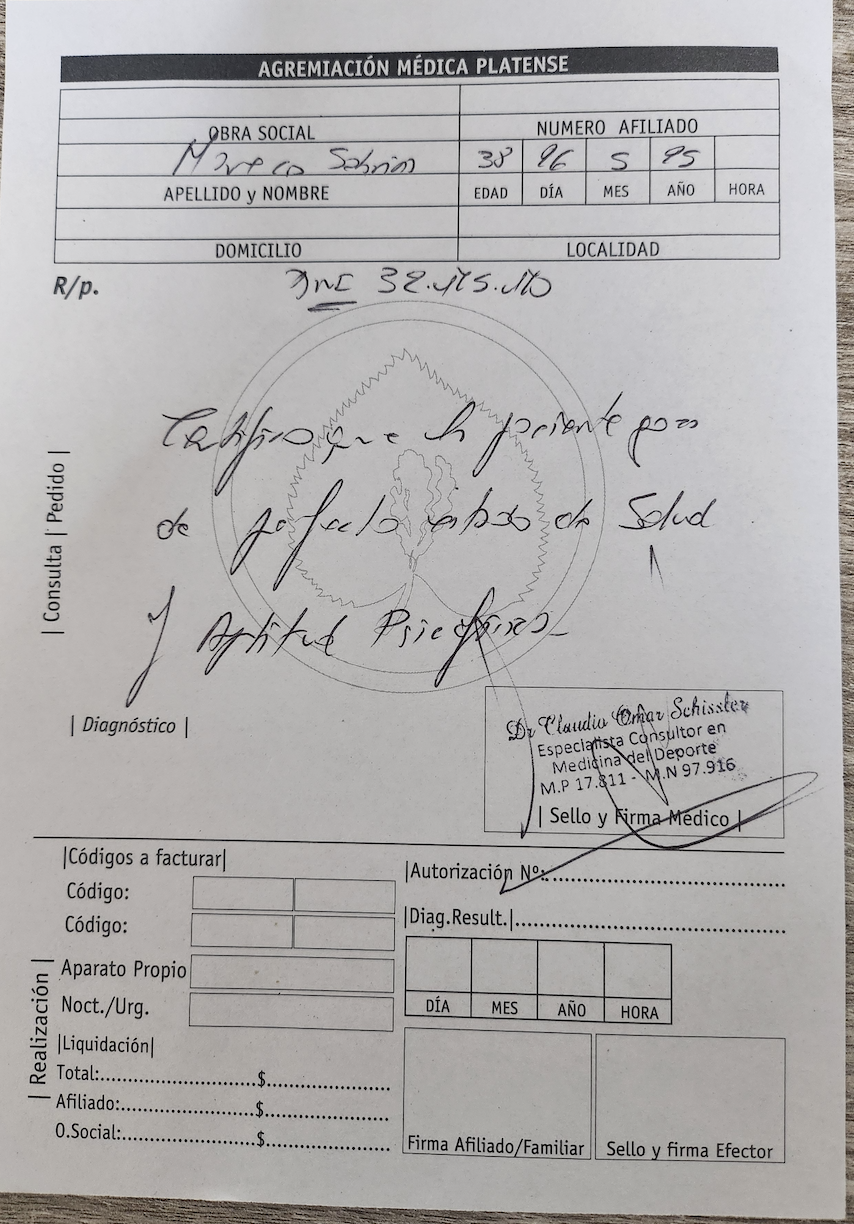 AGREMIACIÓN MÉDICA PLATENSE
OBRA SOCIAL
NUMERO AFILIADO
Mareco Sabrina 38 26 5 25
APELLIDO y NOMBRE EDAD DÍA MES AÑO HORA
DOMICILIO LOCALIDAD
R/p.
DNI 32.
Certifico que la paciente goza
de perfecto estado de Salud
y Aptitud Psicofísica
| Consulta | Pedido |
| Diagnóstico |
Dr Claudio Omar Schissler
Especialista Consultor en
Medicina del Deporte
M.P 17.811 - M.N 97.916
| Sello y Firma Médico |
|Códigos a facturar|
Código:
Código:
Aparato Propio
Noct./Urg.
|Liquidación|
Total:..............................$........................
Afiliado:..........................$........................
O.Social:..........................$........................
| Realización |
|Autorización Nº:..............................................
|Diag.Result.|..................................................
DÍA MES AÑO HORA
Firma Afiliado/Familiar
Sello y firma Efector